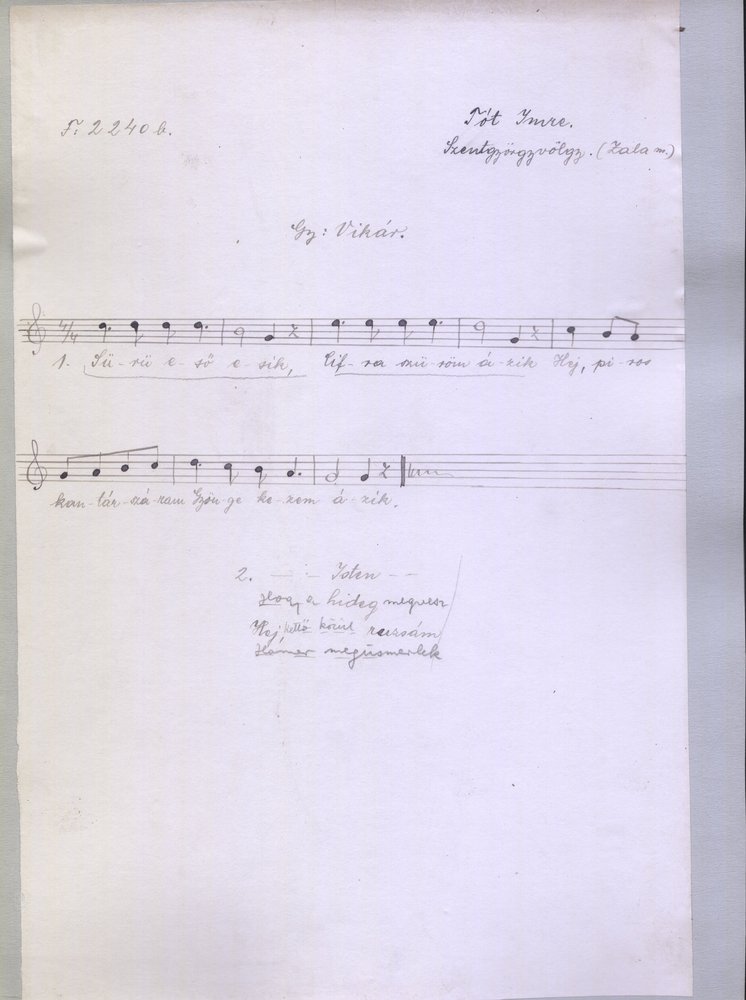 F: 2240 b.
Tót Imre.
Szentgyörgyvölgy. (Zala m.)
Gy: Vikár.
4/4
1. Sü-rü e-ső e-sik, Cif-ra szü-röm á-zik Hej, pi-ros
kan-tár-szá-ram Gyön-ge ke-zem á-zik.
2. — — Isten — —
Hogy a hideg megvesz
Hej, kettő közül rózsám
Hamar megüsmerlek